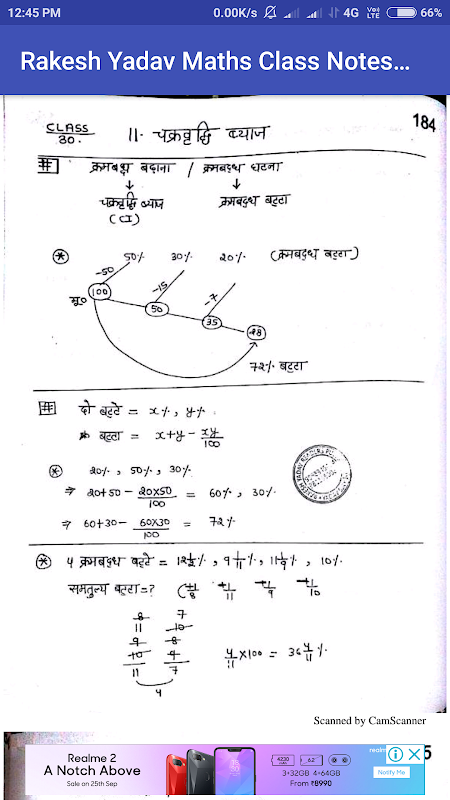 12:45 PM 0.00K/s 4G VoLTE 66%
Rakesh Yadav Maths Class Notes...
184
CLASS 30. 11. चक्रवृद्धि ब्याज
# क्रमबद्ध बढ़ाना / क्रमबद्ध घटना
↓ ↓
चक्रवृद्धि ब्याज क्रमबद्ध बट्टा
(CI)
50% 30% 20% (क्रमबद्ध बट्टा)
-50 -15 -7
मू० 100 50 35 28
72% बट्टा
# दो बट्टे = x%, y%
* बट्टा = x+y - xy/100
* 20%, 50%, 30%
⇒ 20+50 - 20×50/100 = 60%, 30%
⇒ 60+30 - 60×30/100 = 72%
* 4 क्रमबद्ध बट्टे = 12 1/2%, 9 1/11%, 11 1/9%, 10%
समतुल्य बट्टा=? (+1/8 +1/11 +1/9 +1/10
8 7
11 10
9 8
10 9
11 7
4
4/11 ×100 = 36 4/11 %
Scanned by CamScanner
5
Realme 2
A Notch Above
Sale on 25th Sep
4230 6.2
3+32GB 4+64GB
From ₹8990
realme
Notify Me